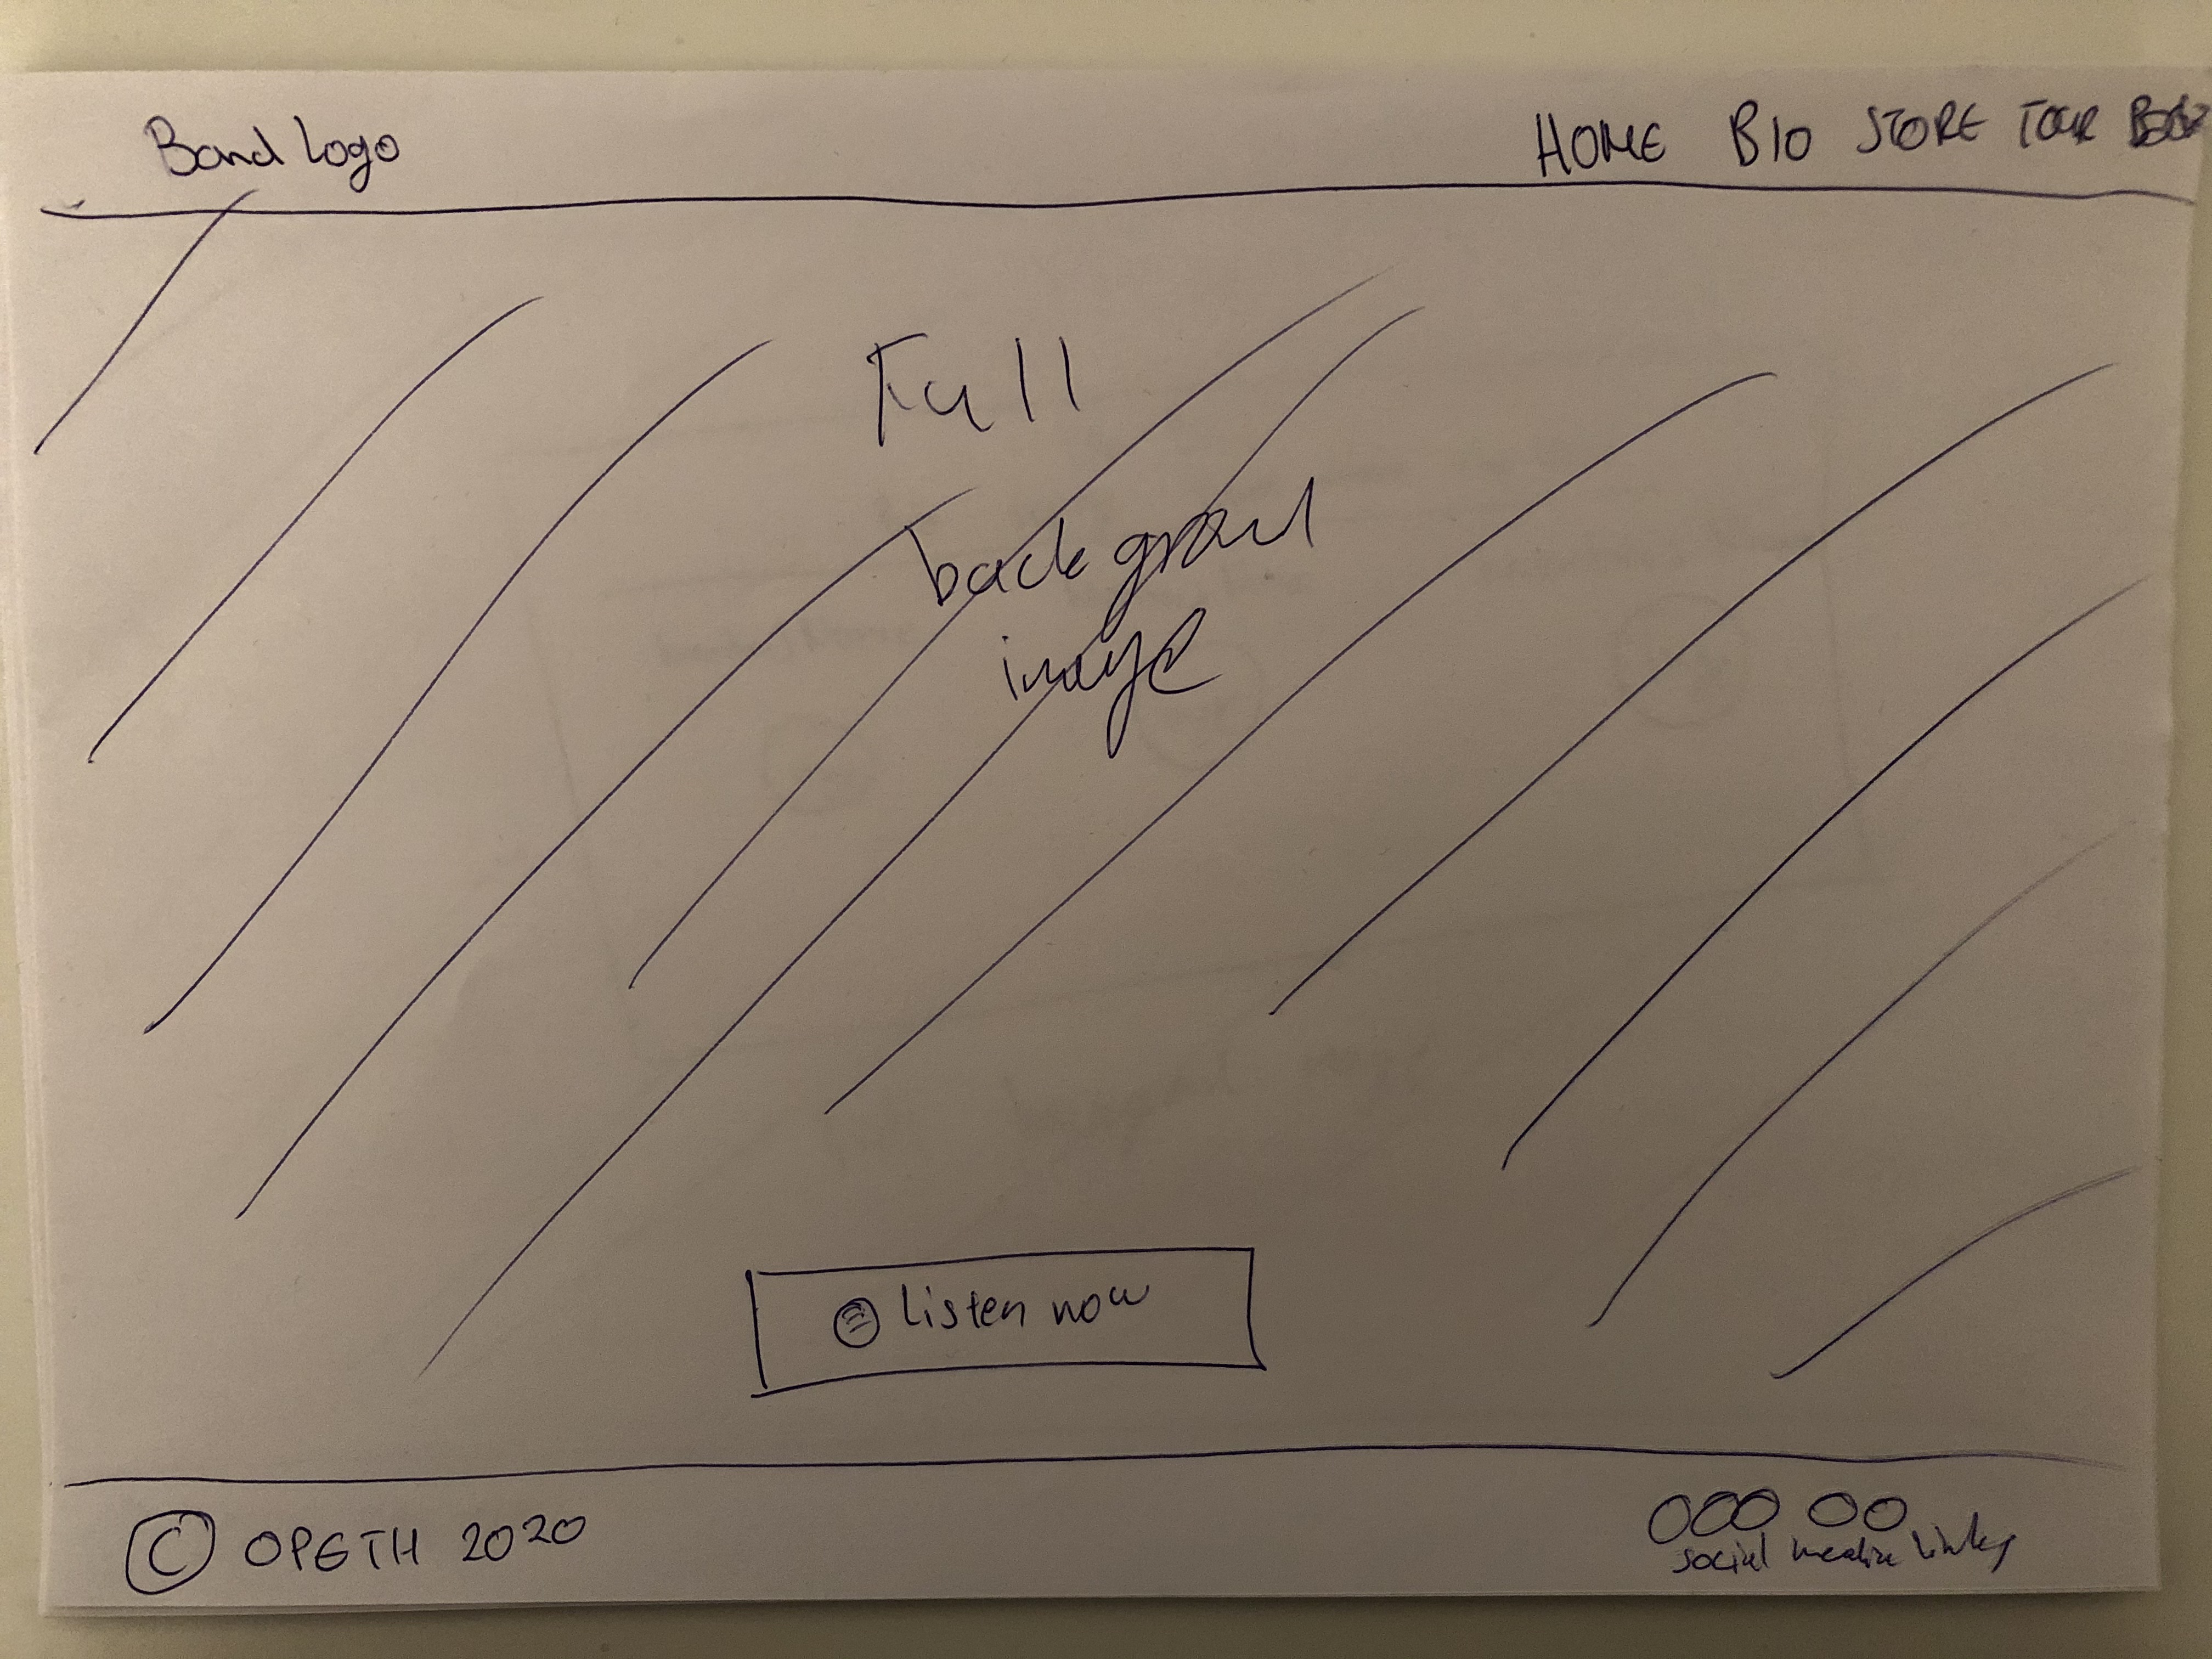 Band logo
HOME BIO STORE TOUR
Full
background
image
Listen now
© OPETH 2020
social media links